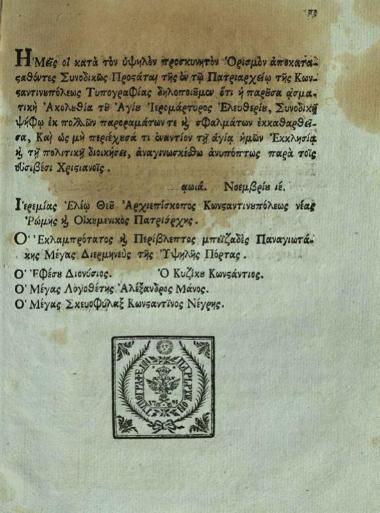 Ἡμεῖς οἱ κατὰ τὸν ὑψηλὸν προσκυνητὸν Ὁρισμὸν ἀποκατα-
ςαθέντες Συνοδικῶς Προςάται τῆς ἐν τῷ Πατριαρχείῳ τῆς Κων-
ςαντινȣπόλεως Τυπογραφίας δηλοποιȣ̃μεν ὅτι ἡ παρȣ̃σα ᾀσμα-
τικὴ Ἀκολȣθία τȣ̃ Ἁγίȣ Ἱερομάρτυρος Ἐλευθερίȣ, Συνοδικῇ
ψήφῳ ἐκ πολλῶν παροραμάτων τε ϗ σφαλμάτων ἐκκαθαρθεῖ-
σα, Καὶ ὡς μὴ περιέχȣσά τι ἐναντίον τῇ ἁγίᾳ ἡμῶν Ἐκκλησίᾳ
ϗ τῇ πολιτικῇ διοικήσει, ἀναγινωσκέθω ἀνυπόπτως παρὰ τοῖς
εὐσεβέσι Χριςιανοῖς.
αωιά. Νοεμβρίȣ ιέ.
Ἱερεμίας Ἐλέῳ Θεȣ̃ Ἀρχιεπίσκοπος Κωνςαντινȣπόλεως νέας
Ῥώμης ϗ Οἰκȣμενικὸς Πατριάρχης.
Ὁ Ἐκλαμπρότατος ϗ Περίβλεπτος μπεϊζαδὲς Παναγιωτά-
κης Μέγας Διερμηνεὺς τῆς Ὑψηλῆς Πόρτας.
Ὁ Ἐφέσȣ Διονύσιος. Ὁ Κυζίκȣ Κωνςάντιος.
Ὁ Μέγας Λογοθέτης Ἀλέξανδρος Μάνος.
Ὁ Μέγας Σκευοφύλαξ Κωνςαντῖνος Νέγρης.